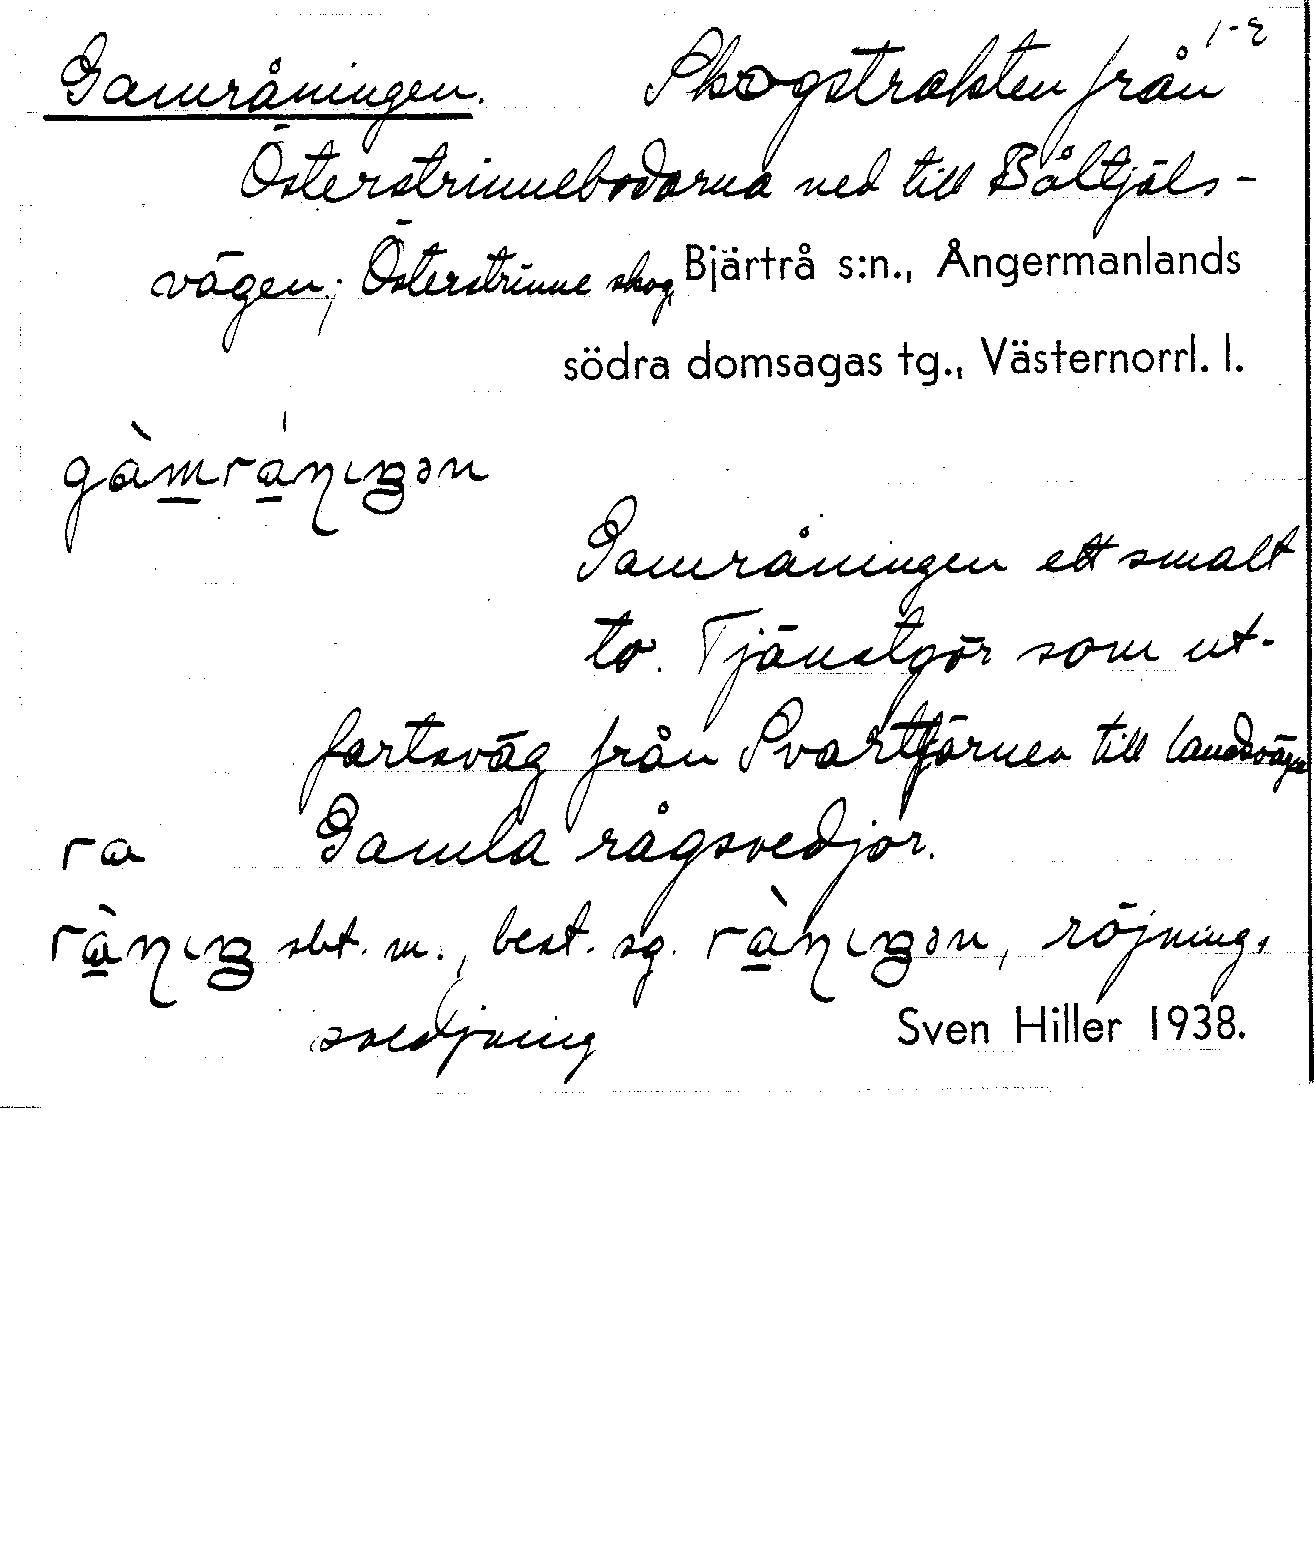 1-2
Gamråningen. Skogstrakten från
Österstrinnebodarna ned till Båltjäls-
vägen; Österstrinne skog Bjärtrå s:n., Ångermanlands
södra domsagas tg., Västernorrl. l.
Gamråningen ett smalt
to. Tjänstgör som ut-
fartsväg från Svarttjärnen till landsvägen
ra Gamla rågsvedjor.
sbt. m., best. sg. röjning,
svedjning Sven Hiller 1938.